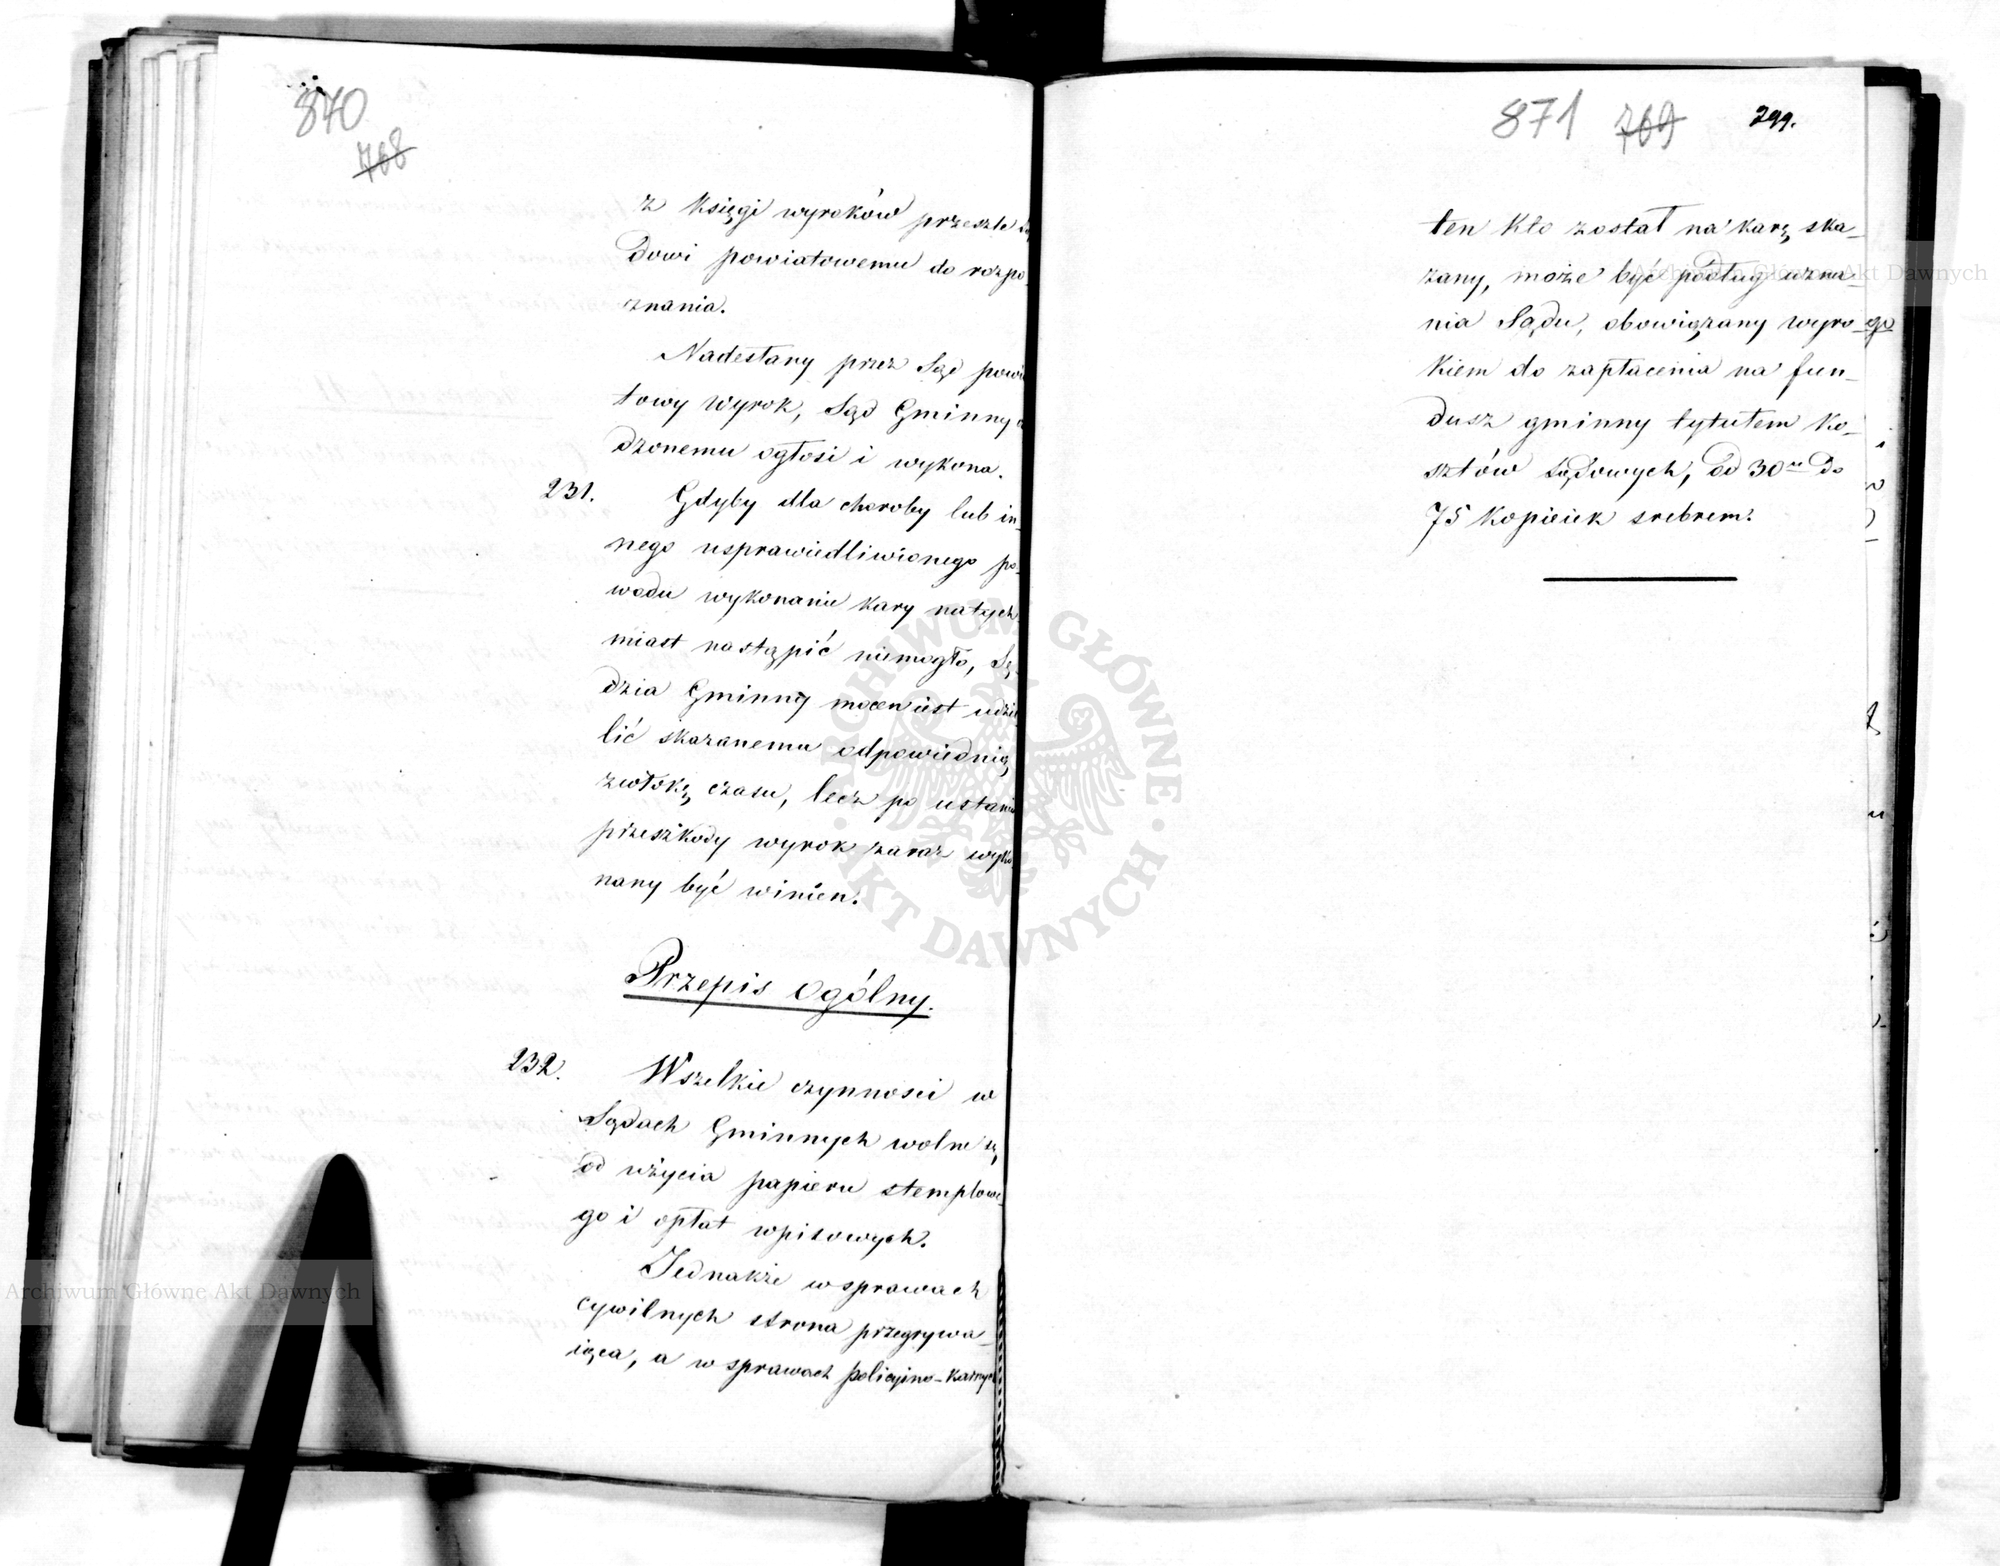 870
768
z księgi wyroków prześle Są
dowi powiatowemu do rozpo-
znania.
Nadesłany przez Sąd powia
towy wyrok, Sąd Gminny
dzonemu ogłosi i wykona.
231. Gdyby dla choroby lub in-
nego usprawiedliwionego po-
wodu wykonanie kary natych
miast nastąpić niemogło, Sę-
dzia Gminny mocen iest udzie
lić skazanemu odpowiednią
zwłokę czasu, lecz po ustaniu
przeszkody wyrok zaraz wyko
nany być winien.
Przepis Ogólny.
232. Wszelkie czynności w
Sądach Gminnych wolne są
od użycia papieru stemplowe
go i opłat wpisowych.
Jednakże w sprawach
cywilnych strona przegrywa-
iąca, a w sprawach policyino-karnych
871 769 299.
ten kto został na karę ska-
zany, może być podług uzna-
nia Sądu, obowiązany wyro-
kiem do zapłacenia na fun-
dusz gminny tytułem ko-
sztów sądowych, od 30u do
75 kopieiek srebrem.
ARCHIWUM GŁÓWNE
AKT DAWNYCH
Archiwum Główne Akt Dawnych
Archiwum Główne Akt Dawnych